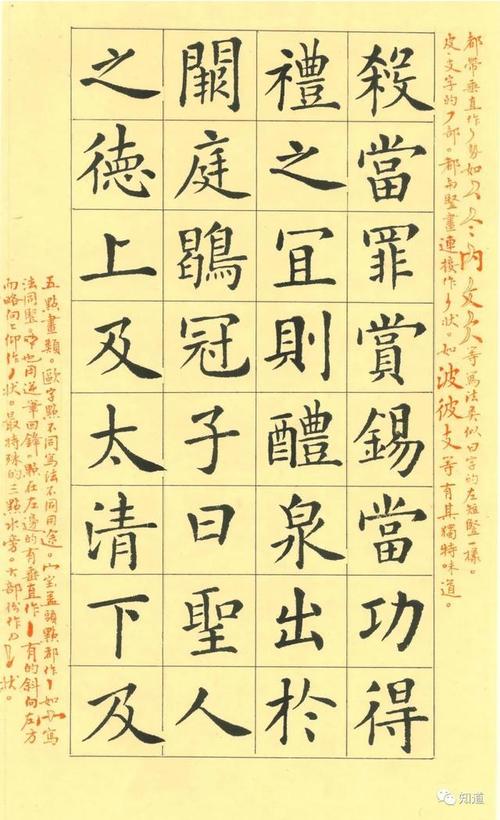 都帶垂直作丿勢如
皮、支字的丿部。都与竪畫連接作丿狀。如波彼支等有其獨特味道。
殺當罪賞錫當功得
禮之宜則醴泉出於
闕庭鶡冠子曰聖人
之德上及太清下及
五點畫類。歐字點不同寫法不同用途。宀宝蓋頭點都作丨如寫
法同竪。也用逆筆回鋒點在左邊的有垂直作丨有的斜向左方
而略向上仰作狀。最特殊的三點水旁。大部份作狀。
知道